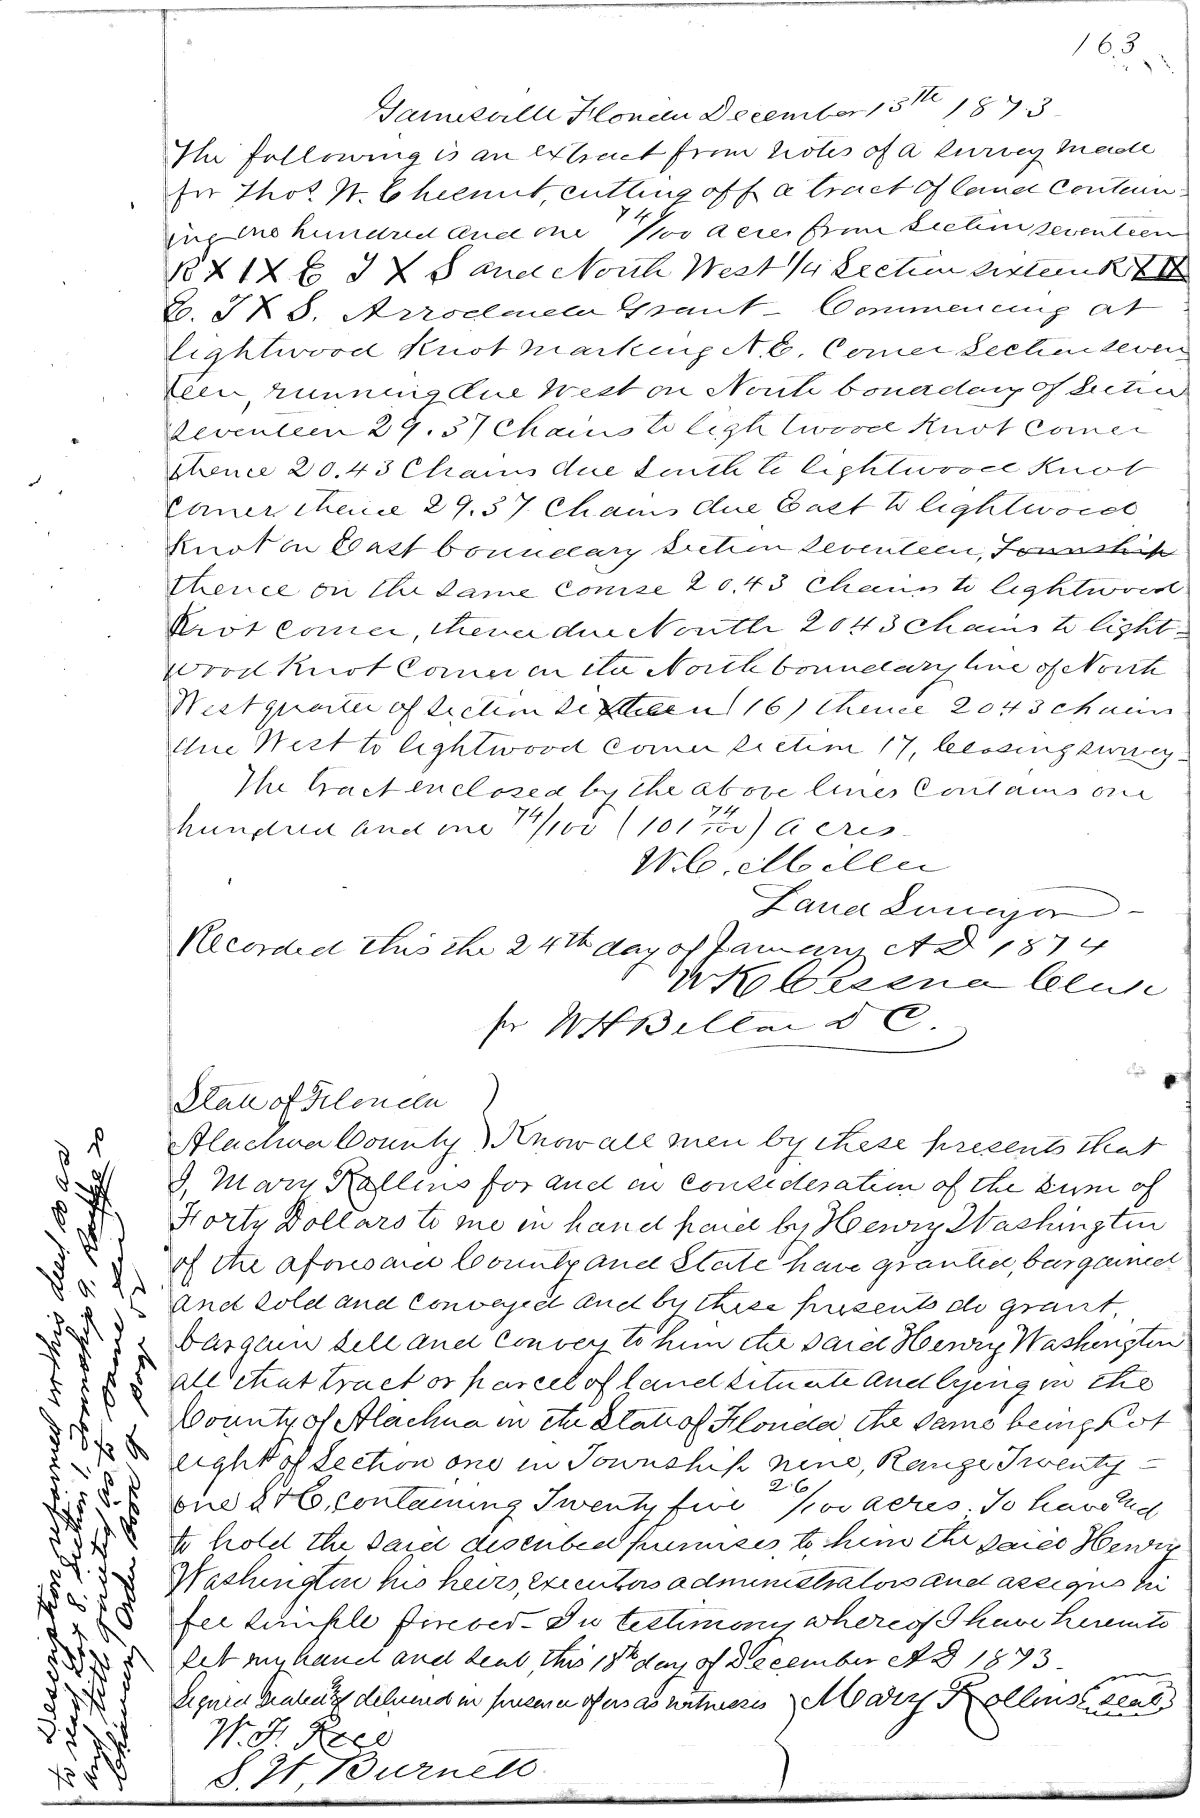 163
Gainesville Florida December 13th 1873
The following is an extract from notes of a survey made
for Thos. W. Chesnut, cutting off a tract of land contain-
ing one hundred and one 74/100 acres from Section seventeen
R X I X E T X S and North West 1/4 Section sixteen R XIX
E. T X S. Arrodonda Grant - Commencing at
lightwood Knot marking N.E. Corner Section seven
teen, running due West on North boundary of Section
seventeen 29.37 Chains to lightwood Knot Corner
thence 20.43 Chains due South to lightwood Knot
Corner thence 29.37 Chains due East to lightwood
Knot on East boundary Section seventeen, Township
thence on the same course 20.43 Chains to lightwood
Knot Corner, thence due North 20.43 Chains to light-
wood Knot Corner on the North boundary line of North
West quarter of Section sixteen (16) thence 20.43 chains
due West to lightwood Corner Section 17, Closing survey-
The tract enclosed by the above lines Contains one
hundred and one 74/100 (101 74/100) acres
W. C. Miller
Land Surveyor -
Recorded this the 24th day of January AD 1874
W K Cessna Clerk
pr W H Belton D C.
State of Florida
Alachua County } Know all men by these presents that
I, Mary Rollins for and in consideration of the sum of
Forty Dollars to me in hand paid by Henry Washington
of the aforesaid County and State have granted, bargained
and sold and conveyed and by these presents do grant,
bargain sell and convey to him the said Henry Washington
all that tract or parcel of land situate and lying in the
County of Alachua in the State of Florida, the same being Lot
eight of Section one in Township nine, Range Twenty-
one S & E, containing Twenty five 26/100 acres. To have and
to hold the said described premises to him the said Henry
Washington his heirs, executors administrators and assigns in
fee simple forever - In testimony whereof I have hereunto
set my hand and seal, this 18th day of December AD 1873 -
Signed Sealed & delivered in presence of us as witnesses } Mary Rollins (seal)
W. F. Rice
S. H. Burnett
Description reformed in this deed so as
to read Lot 8, Section 1, Township 9, Range 20
and title quieted as to same see
Chancery Order Book page 52